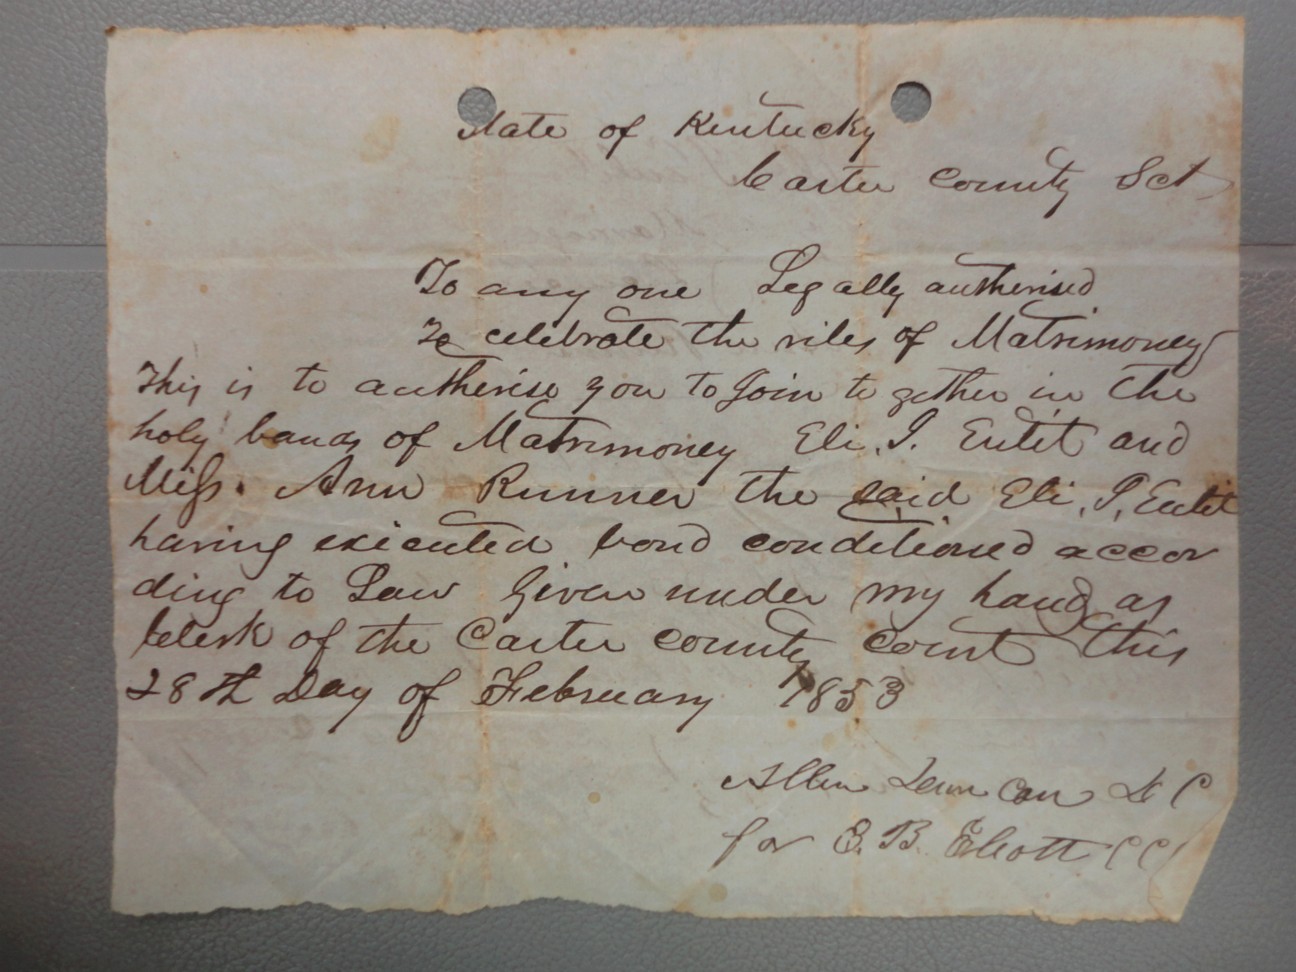 State of Kentucky
Carter County Sct
To any one Legally autherised
To celebrate the rites of Matrimoney
This is to autherise you to Join to gether in the
holy bands of Matrimoney Eli. I. Eulit and
Miss. Ann Runner the said Eli. I. Eulit
having executed bond conditioned accor
ding to Law Given under my hand as
Clerk of the Carter county court this
28th Day of February 1853
Allen D C
for B. Eliott CCC